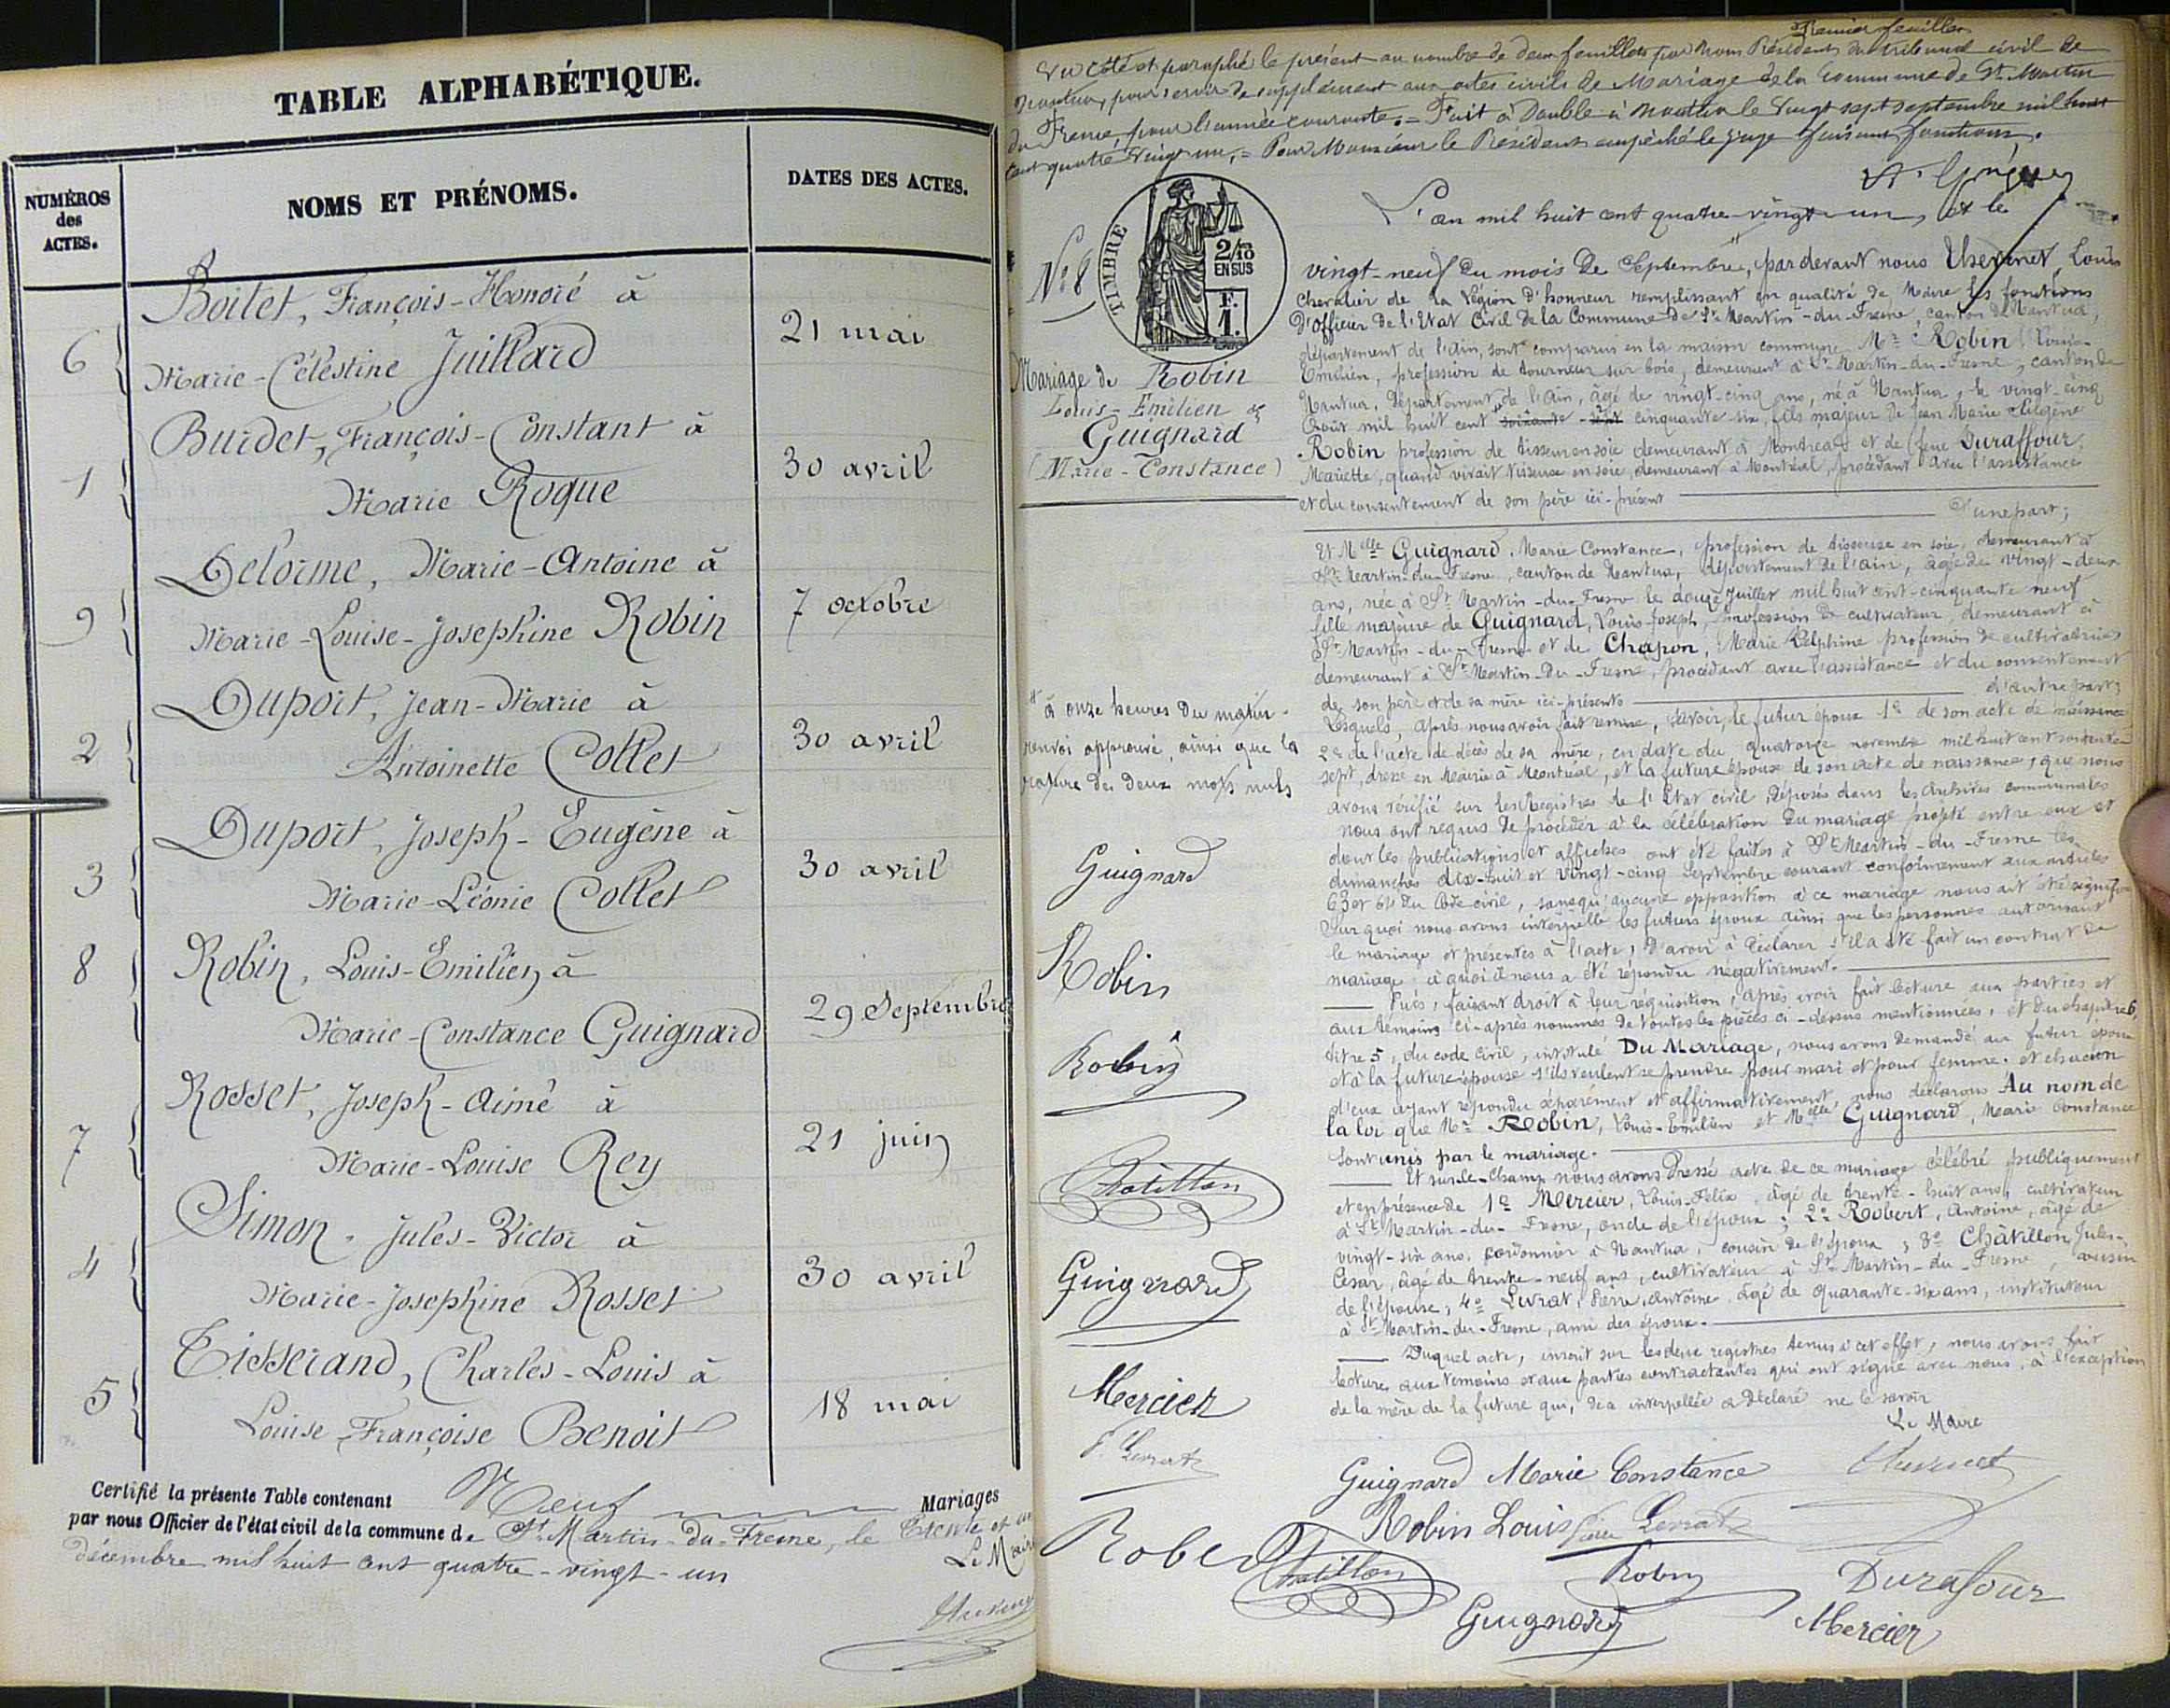 TABLE ALPHABÉTIQUE.
NUMÉROS
des
ACTES.
NOMS ET PRÉNOMS.
DATES DES ACTES.
Boitet, François-Honoré à
6
21 mai
Marie-Célestine Juillard
Burdet, François-Constant à
1
30 avril
Marie Roque
Delorme, Marie-Antoine à
9
7 octobre
Marie-Louise-Josephine Robin
Duport, Jean-Marie à
2
30 avril
Antoinette Collet
Duport, Joseph-Eugène à
3
30 avril
Marie-Léonie Collet
8
Robin, Louis-Emilien à
29 Septembre
Marie-Constance Guignard
Rosset, Joseph-Aimé à
7
21 juin
Marie-Louise Rey
Simon, Jules-Victor à
4
30 avril
Marie-Josephine Rosset
Tisserand, Charles-Louis à
5
18 mai
Louise-Françoise Benoit
Certifié la présente Table contenant Neuf Mariages
par nous Officier de l'état civil de la commune de St Martin-du-Fresne, le trente et un
décembre mil huit cent quatre-vingt-un
Le Maire
Premier feuillet
Vu coté et paraphé le présent au nombre de deux feuillets par nous Président du tribunal civil de
Nantua, pour servir de supplément aux actes civils de Mariage de la Commune de St Martin
du Fresne, pour l'année courante. = Fait à Double à Nantua le Vingt sept septembre mil huit
cent quatre Vingt un, = Pour Monsieur le Président empêché le juge faisant fonctions.
TIMBRE
2/10 EN SUS
F. 1.
No 8
Mariage de Robin
Louis-Emilien &
Guignard
(Marie-Constance)
L'an mil huit cent quatre-vingt-un, et le
vingt-neuf du mois de Septembre, par devant nous Thevenet, Louis
Chevalier de la Légion d'honneur remplissant en qualité de Maire les fonctions
d'officier de l'Etat Civil de la Commune de St Martin-du-Fresne, canton de Nantua,
département de l'Ain, sont comparus en la maison commune Mr Robin Louis-
Emilien, profession de tourneur sur bois, demeurant à St Martin-du-Fresne, canton de
Nantua, département de l'Ain, âgé de vingt-cinq ans, né à Nantua, le vingt-cinq
Août mil huit cent cinquante six, fils majeur de Jean Marie
Robin profession de tisseur en soie demeurant à Montréal et de feue Duraffour,
Mariette, quand vivait tisseuse en soie, demeurant à Montréal, procédant avec l'assistance
et du consentement de son père ici-présent
D'une part;
Et Melle Guignard, Marie Constance, profession de tisseuse en soie, demeurant à
St Martin-du-Fresne, canton de Nantua, département de l'Ain, âgée de vingt-deux
ans, née à St Martin-du-Fresne le douze Juillet mil huit cent-cinquante neuf
fille majeure de Guignard, Louis-Joseph, profession de cultivateur, demeurant à
St Martin-du-Fresne et de Chapon, Marie Delphine profession de cultivatrice
demeurant à St Martin-Du-Fresne, procédant avec l'assistance et du consentement
de son père et de sa mère ici-présents
d'autre part;
à onze heures du matin.
renvoi approuvé, ainsi que la
rature de deux mots nuls
Lesquels, après nous avoir fait remise, savoir, le futur époux 1o de son acte de naissance
2o de l'acte de décès de sa mère, en date du quatorze novembre mil huit cent soixante-
sept, dressé en Mairie à Montréal, et la future épouse de son acte de naissance, que nous
avons vérifié sur les Registres de l'Etat civil, déposés dans les Archives communales
nous ont requis de procéder à la célébration du mariage projeté entre eux et
dont les publications et affiches ont été faites à St Martin-du-Fresne les
dimanches dix-huit et vingt-cinq Septembre courant conformément aux articles
63 et 64 du Code civil, sans qu'aucune opposition à ce mariage nous ait été signifiée
Sur quoi nous avons interpellé les futurs époux ainsi que les personnes autorisant
le mariage et présentes à l'acte, d'avoir à déclarer s'il a été fait un contrat de
mariage, à quoi il nous a été répondu négativement.
Puis, faisant droit à leur réquisition, après avoir fait lecture aux parties et
aux témoins ci-après nommés de toutes les pièces ci-dessus mentionnées, et du chapitre 6,
titre 5, du code civil, intitulé Du Mariage, nous avons demandé au futur époux
et à la future épouse s'ils veulent se prendre pour mari et pour femme. et chacun
d'eux ayant répondu séparément et affirmativement, nous déclarons Au nom de
la loi que Mr Robin, Louis-Emilien et Melle Guignard, Marie Constance
sont unis par le mariage.
Et sur-le-champ nous avons dressé acte de ce mariage célébré publiquement
et en présence de 1o Mercier, Louis-Félix, âgé de trente-huit ans, cultivateur
à St Martin-du-Fresne, oncle de l'époux; 2o Robert, Antoine, âgé de
vingt-six ans, cordonnier à Nantua, cousin de l'époux; 3o Châtillon Jules-
César, âgé de trente-neuf ans, cultivateur à St Martin-du-Fresne, cousin
de l'épouse; 4o Livrat, Pierre, Antoine, âgé de quarante-six ans, instituteur
à St Martin-du-Fresne, ami des époux.
Duquel acte, inscrit sur les deux registres tenus à cet effet, nous avons fait
lecture aux témoins et aux parties contractantes qui ont signé avec nous, à l'exception
de la mère de la future qui, de a interpellée a déclaré ne le savoir
Le Maire
Guignard
Robin
Robin
Chatillon
Guignard
Mercier
Robert
Guignard Marie Constance
Thevenet
Robin Louis
Chatillon
Robin
Durafour
Guignard
Mercier